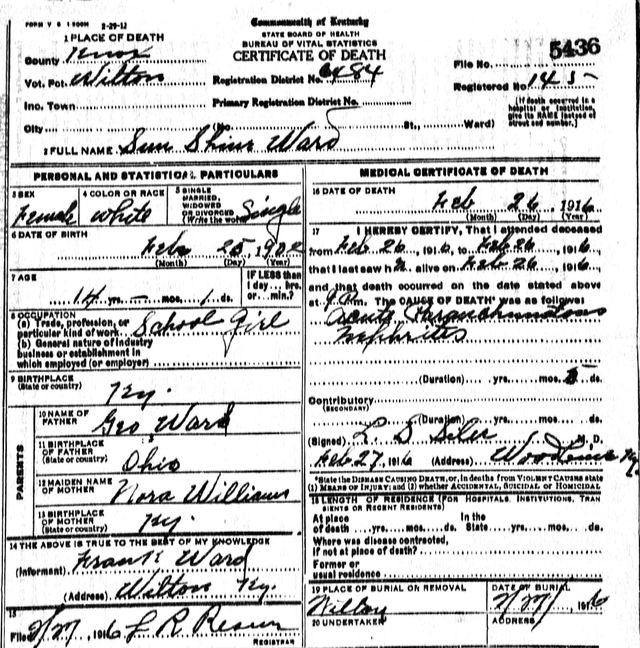 FORM V S 1 500M 2-29-12
Commonwealth of Kentucky
STATE BOARD OF HEALTH
BUREAU OF VITAL STATISTICS
CERTIFICATE OF DEATH
1 PLACE OF DEATH
County Knox
Vot. Pct. Wilton
Registration District No. 6484
File No. 5436
Registered No. 145
Inc. Town
Primary Registration District No.
City (No. St., Ward)
(If death occurred in a hospital or institution, give its NAME instead of street and number.)
2 FULL NAME Sun Shine Ward
PERSONAL AND STATISTICAL PARTICULARS
3 SEX Female
4 COLOR OR RACE white
5 SINGLE MARRIED, WIDOWED OR DIVORCED (Write the word) Single
6 DATE OF BIRTH Feb 25 1902
(Month) (Day) (Year)
7 AGE 14 yrs. - mos. 1 ds.
IF LESS than 1 day... hrs. or... min.?
8 OCCUPATION
(a) Trade, profession, or particular kind of work School Girl
(b) General nature of industry business or establishment in which employed (or employer)
9 BIRTHPLACE (State or country) Ky.
PARENTS
10 NAME OF FATHER Geo Ward
11 BIRTHPLACE OF FATHER (State or country) Ohio
12 MAIDEN NAME OF MOTHER Nora Williams
13 BIRTHPLACE OF MOTHER (State or country) Ky.
14 THE ABOVE IS TRUE TO THE BEST OF MY KNOWLEDGE
(Informant) Frank Ward
(Address) Wilton Ky.
15
Filed 2/27, 1916 L R
REGISTRAR
MEDICAL CERTIFICATE OF DEATH
16 DATE OF DEATH Feb 26, 1916
(Month) (Day) (Year)
17 I HEREBY CERTIFY, That I attended deceased
from Feb 26, 1916, to Feb 26, 1916,
that I last saw h alive on Feb 26, 1916,
and that death occurred on the date stated above
at m. The CAUSE OF DEATH* was as follows:
Acute Paranchmatous
Nephrites
(Duration) yrs. mos. ds.
Contributory
(SECONDARY)
(Duration) yrs. mos. ds.
(Signed) L. S Siler M. D.
Feb 27, 1916 (Address) Woodbine Ky.
*State the DISEASE CAUSING DEATH, or, in deaths from VIOLENT CAUSES state (1) MEANS OF INJURY; and (2) whether ACCIDENTAL, SUICIDAL or HOMICIDAL
18 LENGTH OF RESIDENCE (FOR HOSPITALS, INSTITUTIONS, TRANSIENTS OR RECENT RESIDENTS)
At place of death yrs. mos. ds. In the State yrs. mos. ds.
Where was disease contracted, if not at place of death?
Former or usual residence
19 PLACE OF BURIAL OR REMOVAL
Wilton
DATE OF BURIAL
2/27, 1916
20 UNDERTAKER
ADDRESS